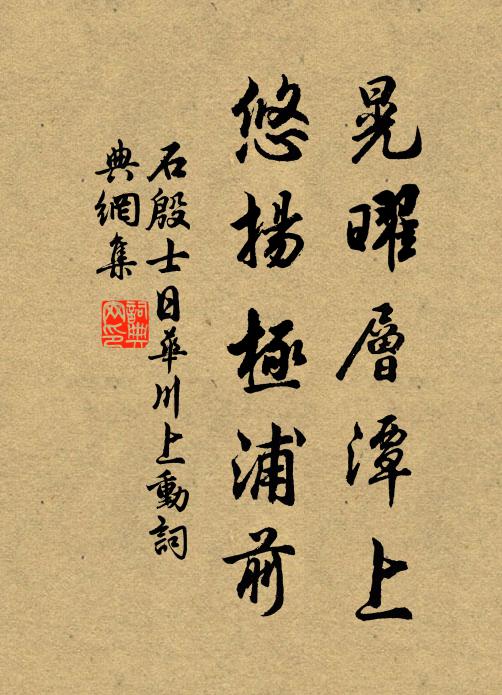 晃曜層潭上
悠揚極浦前
石殷士日華川上動詞
典網集
詞典
网印